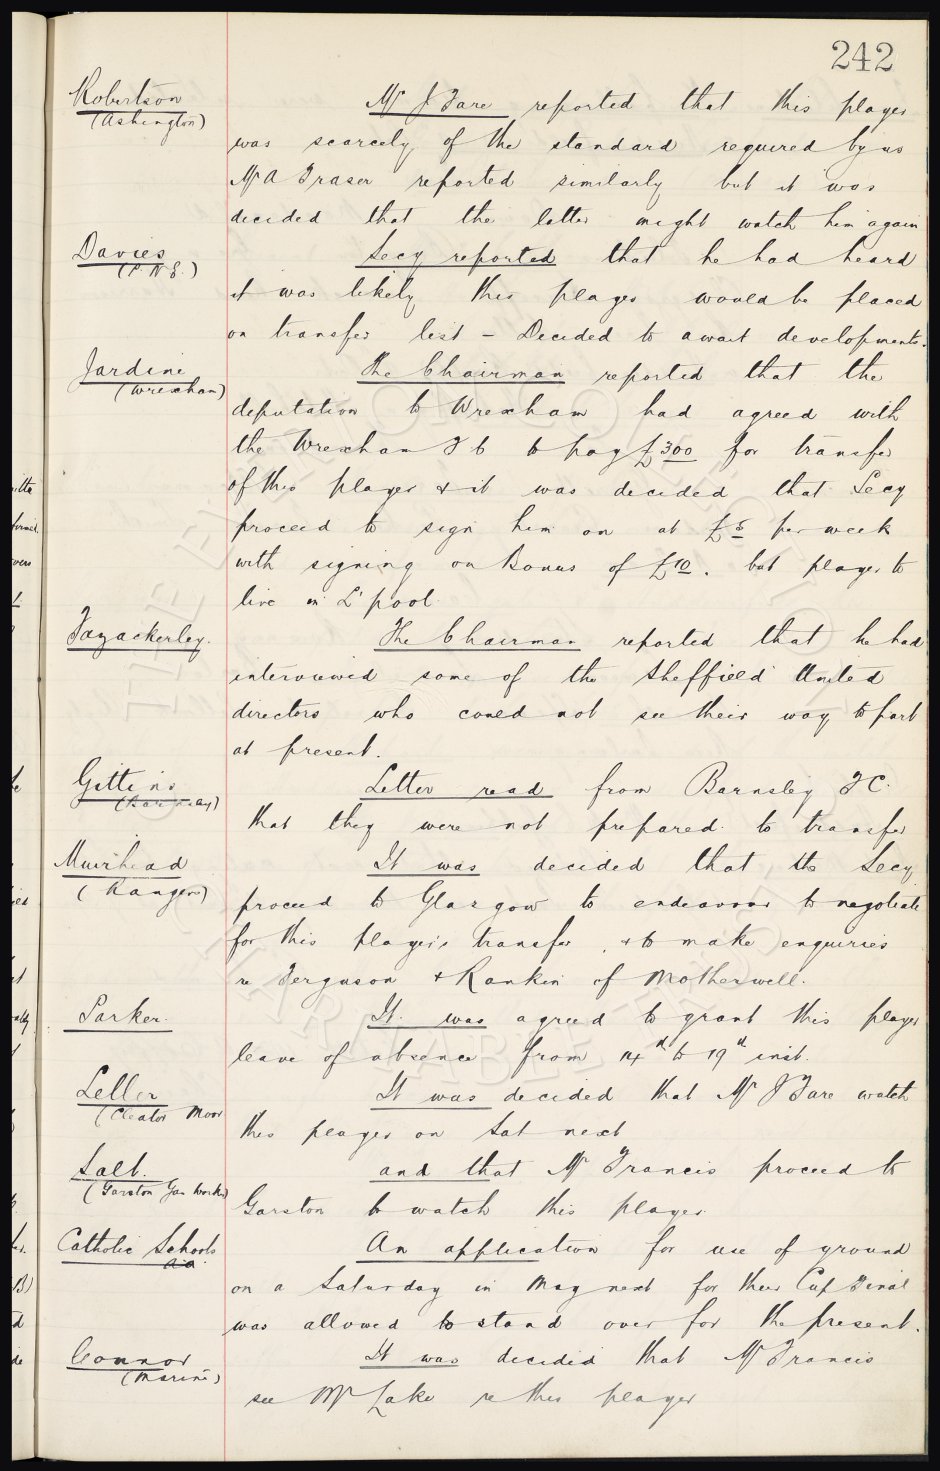 242
Robertson
(Ashington)
Mr J Fare reported that this player
was scarcely of the standard required by us
Mr A Fraser reported similarly but it was
decided that the latter might watch him again
Davies
(P.N.E.)
Secy reported that he had heard
it was likely this player would be placed
on transfer list – Decided to await developments.
Jardine
(Wrexham)
The Chairman reported that the
deputation to Wrexham had agreed with
the Wrexham F C to pay £300 for transfer
of this player & it was decided that Secy
proceed to sign him on at £5 per week
with signing on Bonus of £10. but player to
live in L'pool
Fazackerley.
The Chairman reported that he had
interviewed some of the Sheffield United
directors who could not see their way to part
at present.
Gittins
(Barnsley)
Letter read from Barnsley F C.
that they were not prepared to transfer
Muirhead
(Rangers)
It was decided that the Secy
proceed to Glasgow to endeavour to negotiate
for this player's transfer, & to make enquiries
re Ferguson & Rankin of Motherwell.
Parker.
It was agreed to grant this player
leave of absence from 14th to 19th inst.
(Cleator Moor
It was decided that Mr J Fare watch
this player on Sat next
Salt.
(Garston Gas Works)
and that Mr Francis proceed to
Garston to watch this player
Catholic Schools
A.A.
An application for use of ground
on a Saturday in May next for their Cup Final
was allowed to stand over for the present.
Connor
(Marine)
It was decided that Mr Francis
see Mr Lake re this player
THE EVERTON COLLECTION
CHARITABLE TRUST